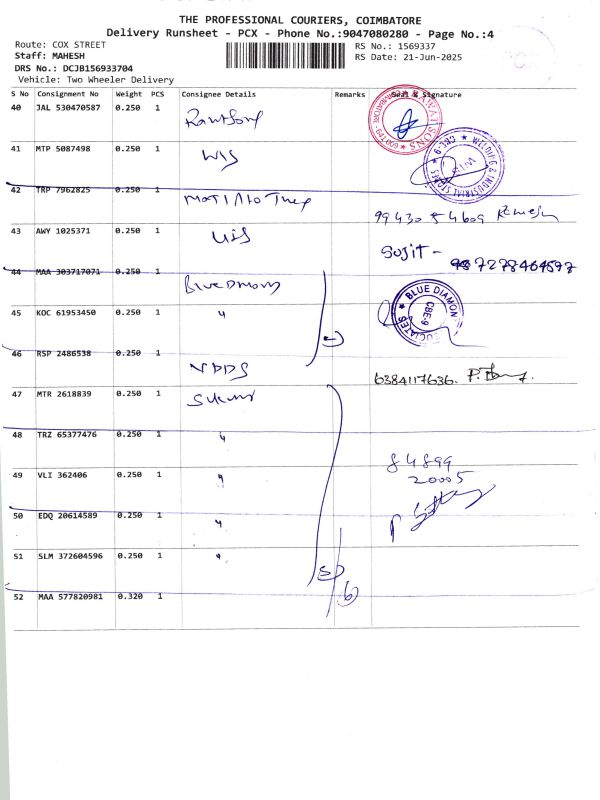 THE PROFESSIONAL COURIERS, COIMBATORE
Delivery Runsheet - PCX - Phone No.:9047080280 - Page No.:4
Route: COX STREET
RS No.: 1569337
Staff: MAHESH
RS Date: 21-Jun-2025
DRS No.: DCJB156933704
Vehicle: Two Wheeler Delivery
S No Consignment No Weight PCS Consignee Details Remarks Seal & Signature
40 JAL 530470587 0.250 1
41 MTP 5087498 0.250 1 WIS
WELDING & INDUSTRIAL STORES ★ CBE-9 ★
42 TRP 7962825 0.250 1
99430 54609
43 AWY 1025371 0.250 1
Sujit - 7278464597
44 MAA 303717071 0.250 1 Blue Dimond
45 KOC 61953450 0.250 1 "
★ BLUE DIAMOND CBE-9
46 RSP 2486538 0.250 1 NDDS
6384117636.
47 MTR 2618839 0.250 1
48 TRZ 65377476 0.250 1 "
84899
49 VLI 362406 0.250 1 "
20005
50 EDQ 20614589 0.250 1 "
51 SLM 372604596 0.250 1 "
52 MAA 577820981 0.320 1